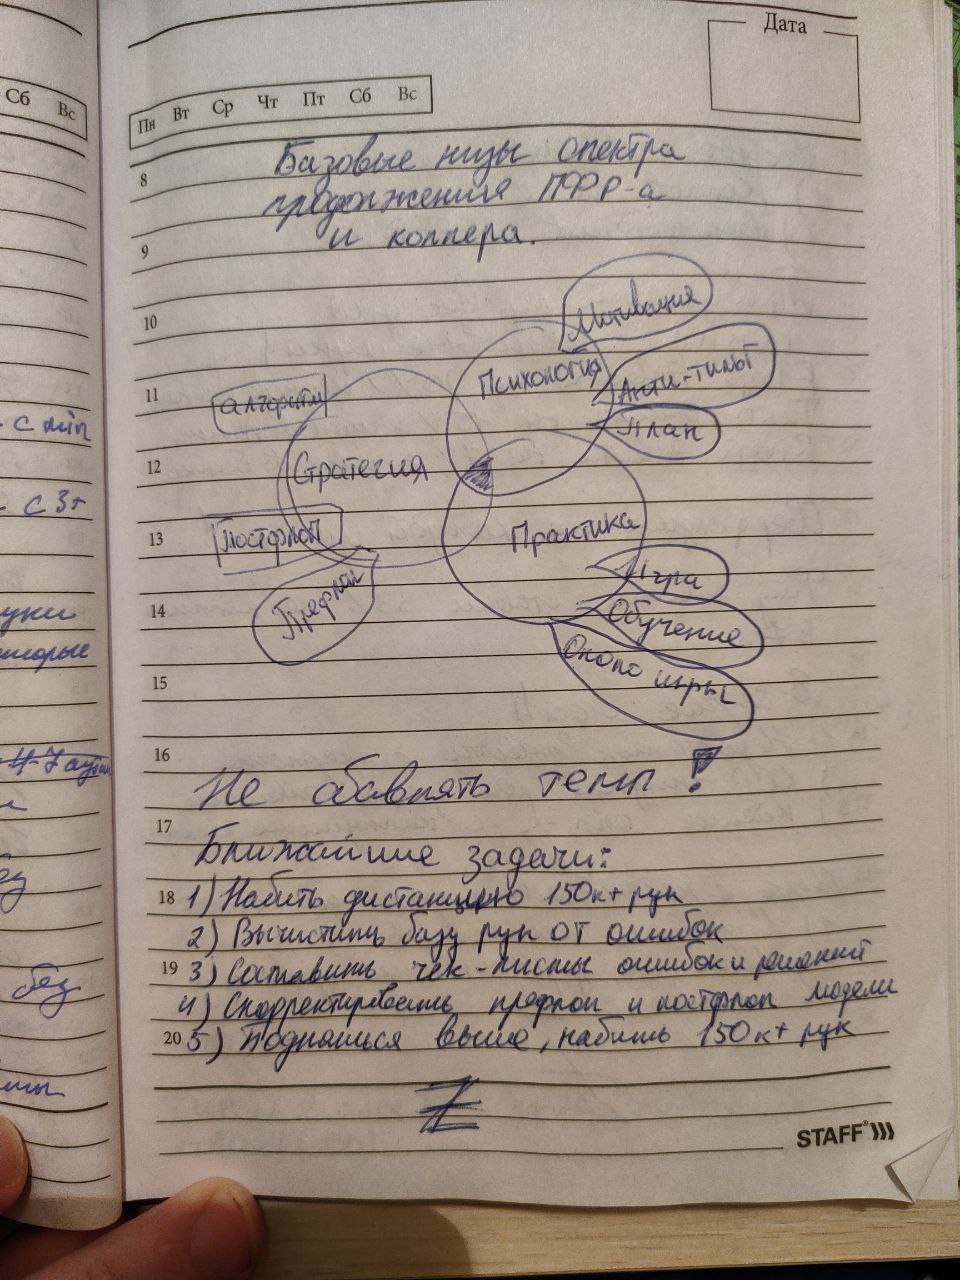 Сб Вс
Дата
Пн Вт Ср Чт Пт Сб Вс
8
Базовые низы спектра
продолжения ПФР-а
9
и коллера.
10
Мотивация
11
Психология
Анти-тильт
алгоритм
План
12
Стратегия
с min
с 3+
13
Постфлоп
Практика
Игра
Префлоп
14
Обучение
Около игры
15
16
Не сбавлять темп!
17
Ближайшие задачи:
18 1) Набить дистанцию 150к+ рук
2) Вычистить базу рук от ошибок
19 3) Составить чек-листы ошибок и решений
без
4) Скорректировать префлоп и постфлоп модели
20 5) Подняться выше, набить 150к+ рук
Z
STAFF